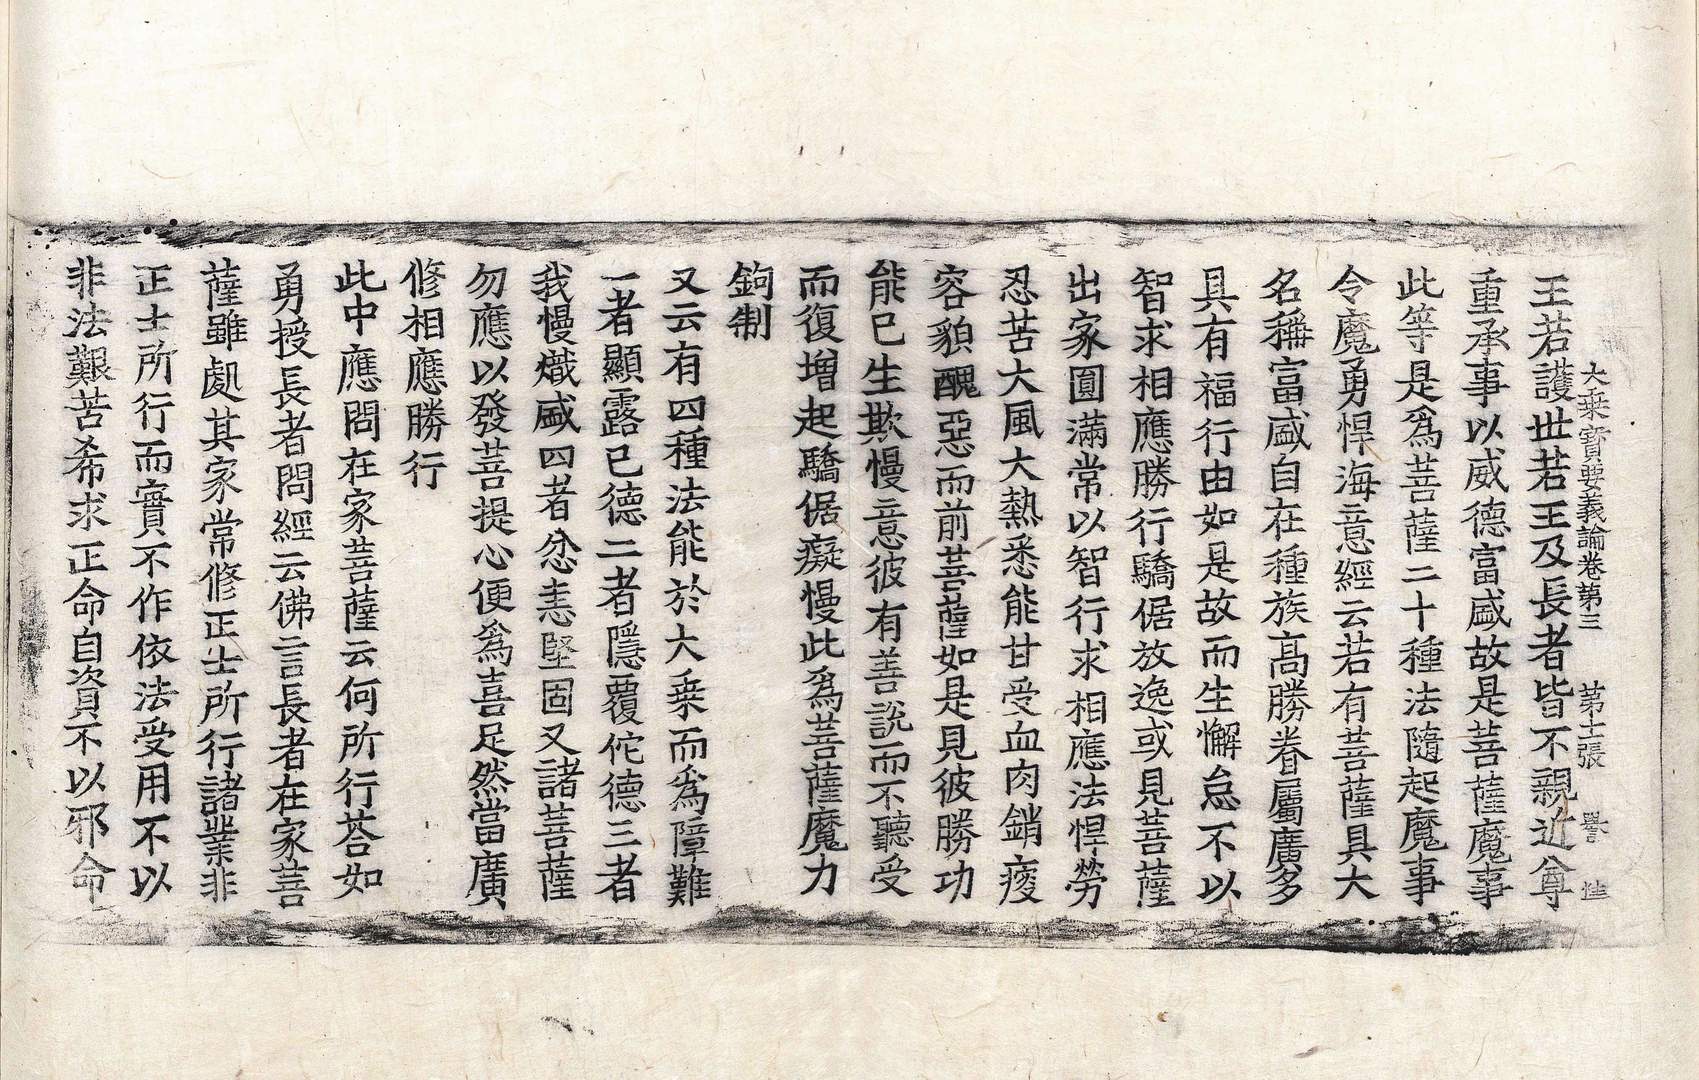 大乗寶要義論卷第三 第十二張 譽
王若護世若王及長者皆不親近尊
重承事以威德富盛故是菩薩魔事
此等是爲菩薩二十種法隨起魔事
令魔勇悍海意經云若有菩薩具大
名稱富盛自在種族高勝眷屬廣多
具有福行由如是故而生懈怠不以
智求相應勝行驕倨放逸或見菩薩
出家圓滿常以智行求相應法悍勞
忍苦大風大熱悉能甘受血肉銷瘦
容貌醜惡而前菩薩如是見彼勝功
能已生欺慢意彼有善說而不聽受
而復增起驕倨癡慢此爲菩薩魔力
鉤制
又云有四種法能於大乗而爲障難
一者顯露已德二者隱覆佗德三者
我慢熾盛四者忿恚堅固又諸菩薩
勿應以發菩提心便爲喜足然當廣
修相應勝行
此中應問在家菩薩云何所行荅如
勇授長者問經云佛言長者在家菩
薩雖處其家常修正士所行諸業非
正士所行而實不作依法受用不以
非法艱苦希求正命自資不以邪命